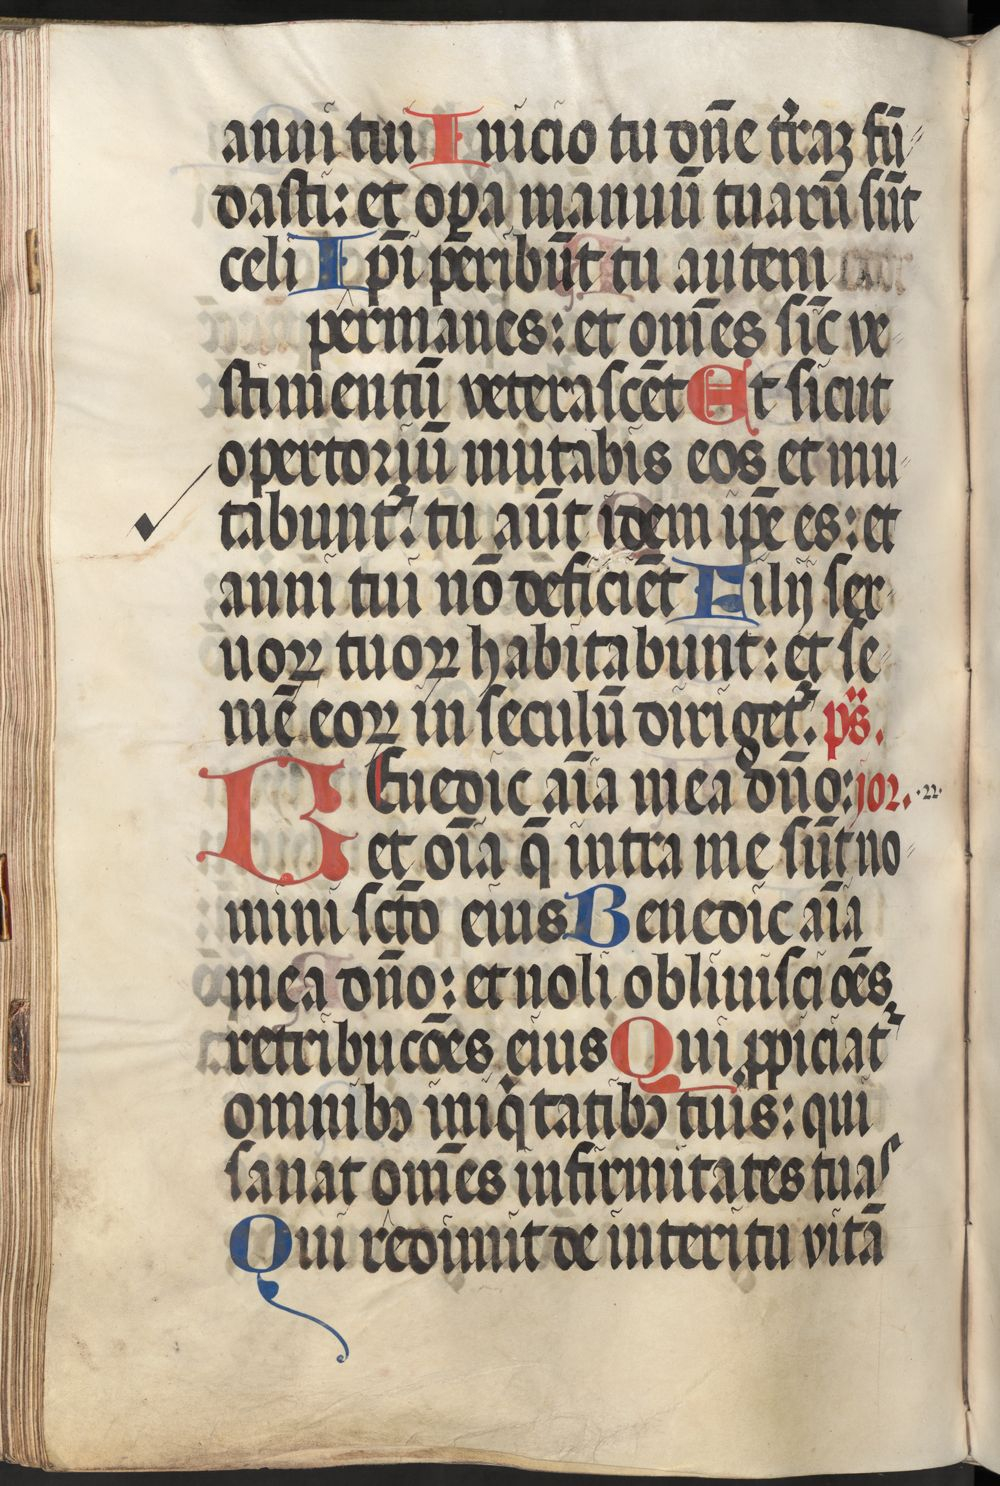 anni tui Inicio tu dn̄e t'raꝫ fū⸗
dasti: et oꝑa manuū tuarū sūt
celi Ipī peribūt tu autem
permanes: et om̄es sic̄ ve⸗
stimentū veterascēt Et sicut
opertoriū mutabis eos et mu⸗
tabunt᷑: tu aūt idem ip̄e es: et
anni tui nō deficiēt Filij ser⸗
uoꝝ tuoꝝ habitabunt: et se⸗
mē eoꝝ in seculū diriget᷑. ps̄.
Benedic aīa mea dn̄o: ior. ·22·
et oīa q̄ intra me sūt no⸗
mini scto̅ eius Benedic aīa
mea dn̄o: et noli obliuisci oēs
retribucōes eius Qui ꝓpiciat᷑
omnibꝫ iniqͥtatibꝫ tuis: qui
sanat om̄es infirmitates tuas
Qui redimit de interitu vitā